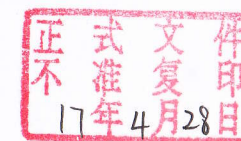 正式文件
不准复印
17年4月28日